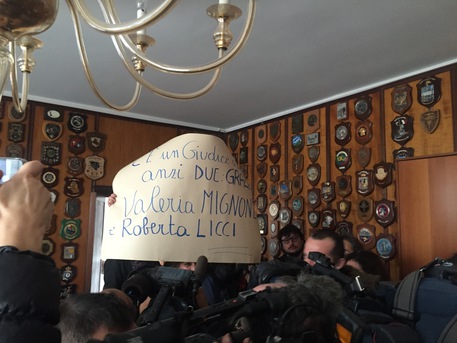 è un Giudice
anzi DUE. GR
Valeria MIGNON
e Roberta LICCI